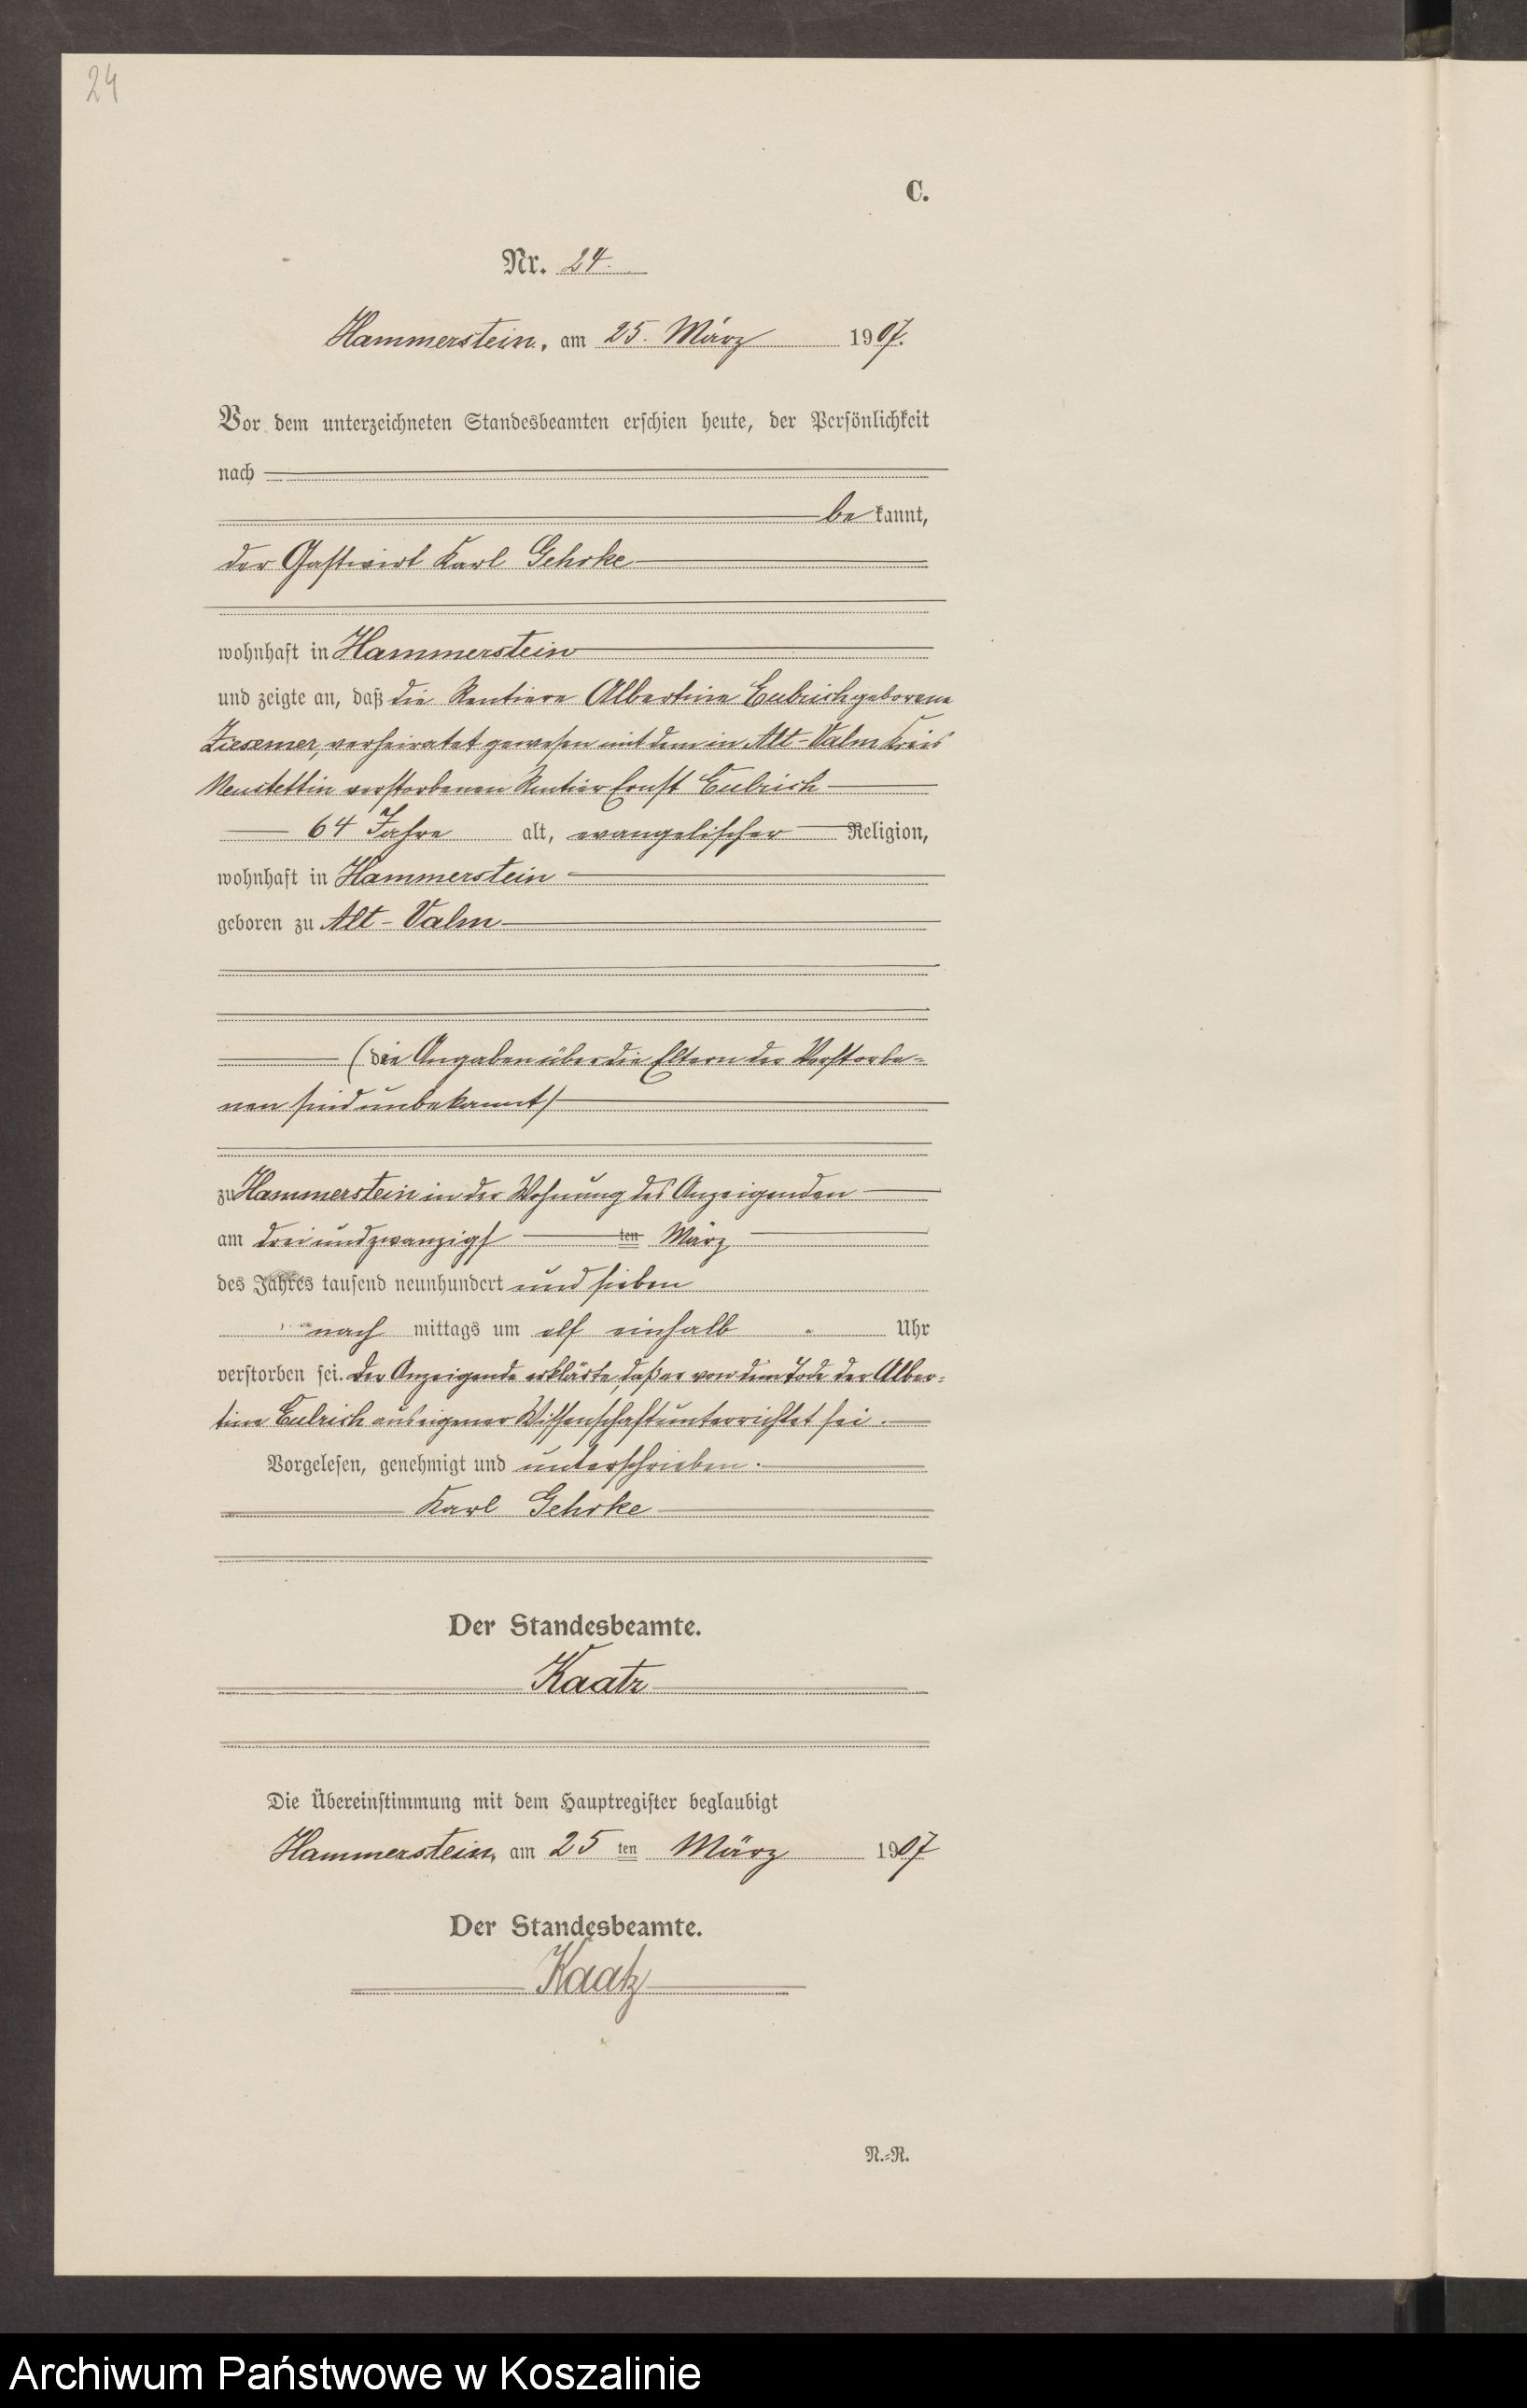 24
C.
Nr. 24.
Hammerstein, am 25. März 1907.
Vor dem unterzeichneten Standesbeamten erschien heute, der Persönlichkeit
nach
be kannt,
der Gastwirt Karl Gehrke
wohnhaft in Hammerstein
und zeigte an, daß die Rentiere Albertine Eubrich geborene
Ziesemer, verheiratet gewesen mit dem in Alt-Valm Kreis
Neustettin verstorbenen Rentier Ernst Eubrich
64 Jahre alt, evangelischer Religion,
wohnhaft in Hammerstein
geboren zu Alt-Valm
(die Angaben über die Eltern der Verstorbe=
nen sind unbekannt)
zu Hammerstein in der Wohnung des Anzeigenden
am dreiundzwanzigs ten März
des Jahres tausend neunhundert und sieben
nach mittags um elf einhalb Uhr
verstorben sei. Der Anzeigende erklärte, daß er von dem Tode der Alber=
tine Eubrich aus eigener Wissenschaft unterrichtet sei.
Vorgelesen, genehmigt und unterschrieben.
Karl Gehrke
Der Standesbeamte.
Kaatz
Die Übereinstimmung mit dem Hauptregister beglaubigt
Hammerstein, am 25 ten März 1907
Der Standesbeamte.
Kaatz
N.=R.
Archiwum Państwowe w Koszalinie